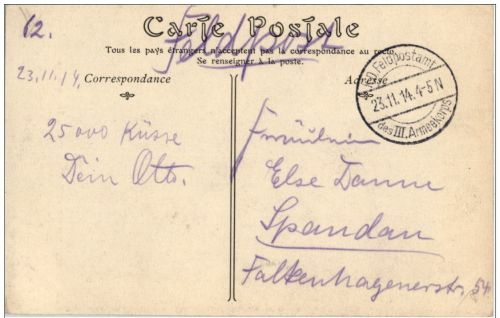 12.
Carte Postale
Feldpost
Tous les pays étrangers n'acceptent pas la correspondance au recto.
Se renseigner à la poste.
23.11.14.
Correspondance
Adresse
Feldpostamt
23.11.14.4-5N
des III. Armeekorps
25000 Küsse
Dein Otto.
Fräulein
Else Damme
Spandau
Falkenhagenerstr. 54